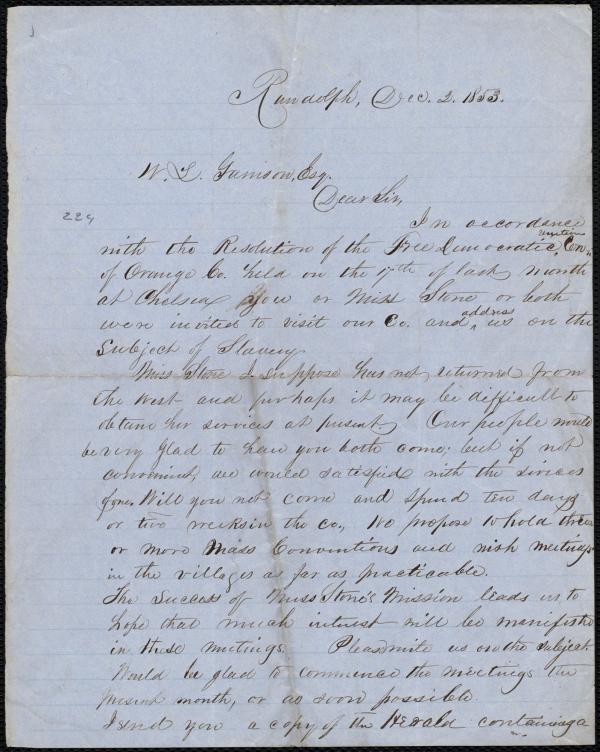 Randolph, Dec. 2. 1853.
W. L. Garrison, Esq.
Dear Sir,
224
In accordance
with the Resolution of the Free Democratic Convention
of Orange Co. held on the 17th of last month
at Chelsea you or Miss Stone or both
were invited to visit our Co. and address us on the
subject of Slavery.
Miss Stone I suppose has not returned from
the West and perhaps it may be difficult to
obtain her services at present. Our people would
be very glad to have you both come; but if not
convenient, we would satisfied with the services
of one. Will you not come and spend ten days
or two weeks in the co., We propose to hold three
or more Mass Conventions and wish meetings
in the villages as far as practicable.
The success of Miss Stone's Mission leads us to
hope that much interest will be manifested
in these meetings. Please write us on the subject.
Would be glad to commence the meetings the
present month, or as soon possible.
I send you a copy of the Herald containing a